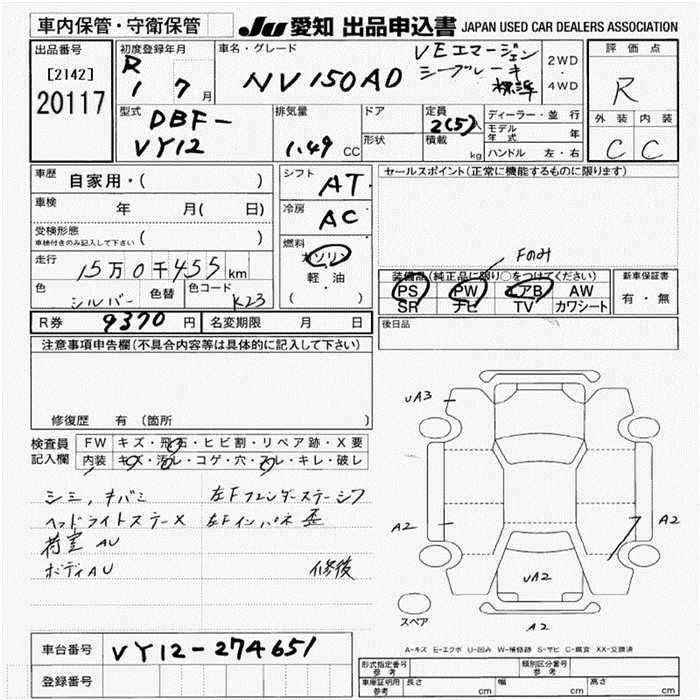 車内保管・守衛保管
JU 愛知 出品申込書 JAPAN USED CAR DEALERS ASSOCIATION
出品番号
[2142]
20117
初度登録年月
R
1 7月
車名・グレード
NV150AD
VEエマージェン
シーブレーキ
標準
2WD
・
4WD
評価点
R
外装 内装
C C
型式
DBF-
VY12
排気量
1.49 CC
ドア
形状
定員
2(5)
積載
kg
ディーラー・並行
モデル年式 年
ハンドル 左・右
車歴 自家用・( )
車検 年 月( 日)
受検形態
車検付きのみ記入して下さい ( )
走行 15万0千455km
色 シルバー 色替 色コード K23
シフト AT
冷房 AC
燃料
ガソリン
・
軽油
( )
セールスポイント(正常に機能するものに限ります)
Fのみ
装備品(純正品に限り○をつけてください)
PS PW エアB AW
SR ナビ TV カワシート
新車保証書
有・無
後日品
R券 9370円 名変期限 月 日
注意事項申告欄(不具合内容等は具体的に記入して下さい)
修復歴 有 (箇所
検査員
記入欄
FW キズ・飛石・ヒビ割・リペア跡・X要
内装 キズ・汚レ・コゲ・穴・スレ・キレ・破レ
シミ、キバミ 左Fフェンダーステーシワ
ヘッドライトステーX 左Fインパネ歪
荷室AU
ボディAU 修復
UA3
A2
A2
UA2
A2
スペア
A-キズ E-エクボ U-凹み W-補修跡 S-サビ C-腐食 XX-交換済
車台番号 VY12-274651
登録番号
形式指定番号
参考
類別区分番号
参考
車庫証明用
参考
長さ cm 幅 cm 高さ cm